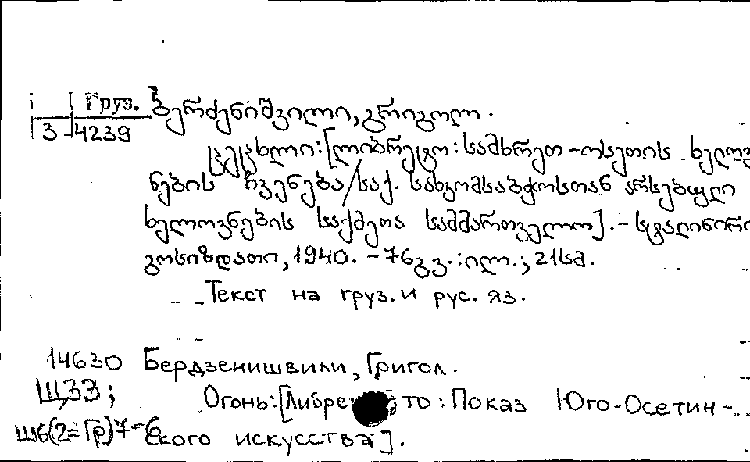 Груз. ბერძენიშვილი, გრიგოლ.
3-4239
ცეცხლი: [ლიბრეტო: სამხრეთ-ოსეთის ხელოვ
ნების ჩვენება/საქ. სახკომსაბჭოსთან არსებული
ხელოვნების საქმეთა სამმართველო]. - სტალინირი,
გოსიზდათი, 1940. - 76გვ.: ილ.; 21სმ.
Текст на груз. и рус. яз.
14630 Бердзенишвили, Григол.
Щ33; Огонь: [Либре то: Показ Юго-Осетин-
Щ6(2=Гр)7-6 ского искусства].